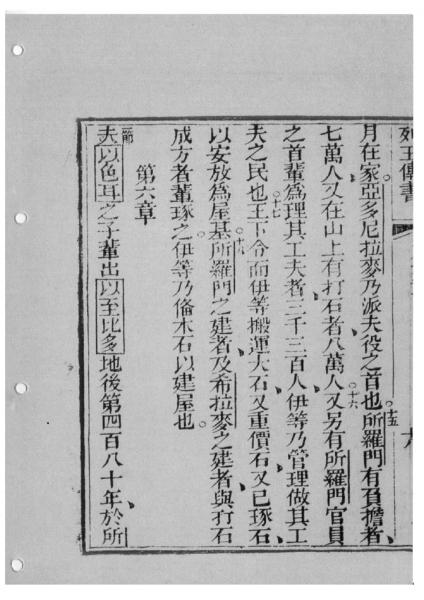 列王傳書
月在家亞多尼拉麥乃派夫役之首也所羅門有負擔者
十五
七萬人又在山上有打石者八萬人又另有所羅門官員
十六
之首輩爲理其工夫者三千三百人伊等乃管理做其工
夫之民也王下令而伊等搬運大石又重價石又已琢石
十七
以安放爲屋基所羅門之建者及希拉麥之建者與孖石
十八
成方者輩琢之伊等乃俻木石以建屋也
第六章
一節
夫以色耳之子輩出以至比多地後第四百八十年於所